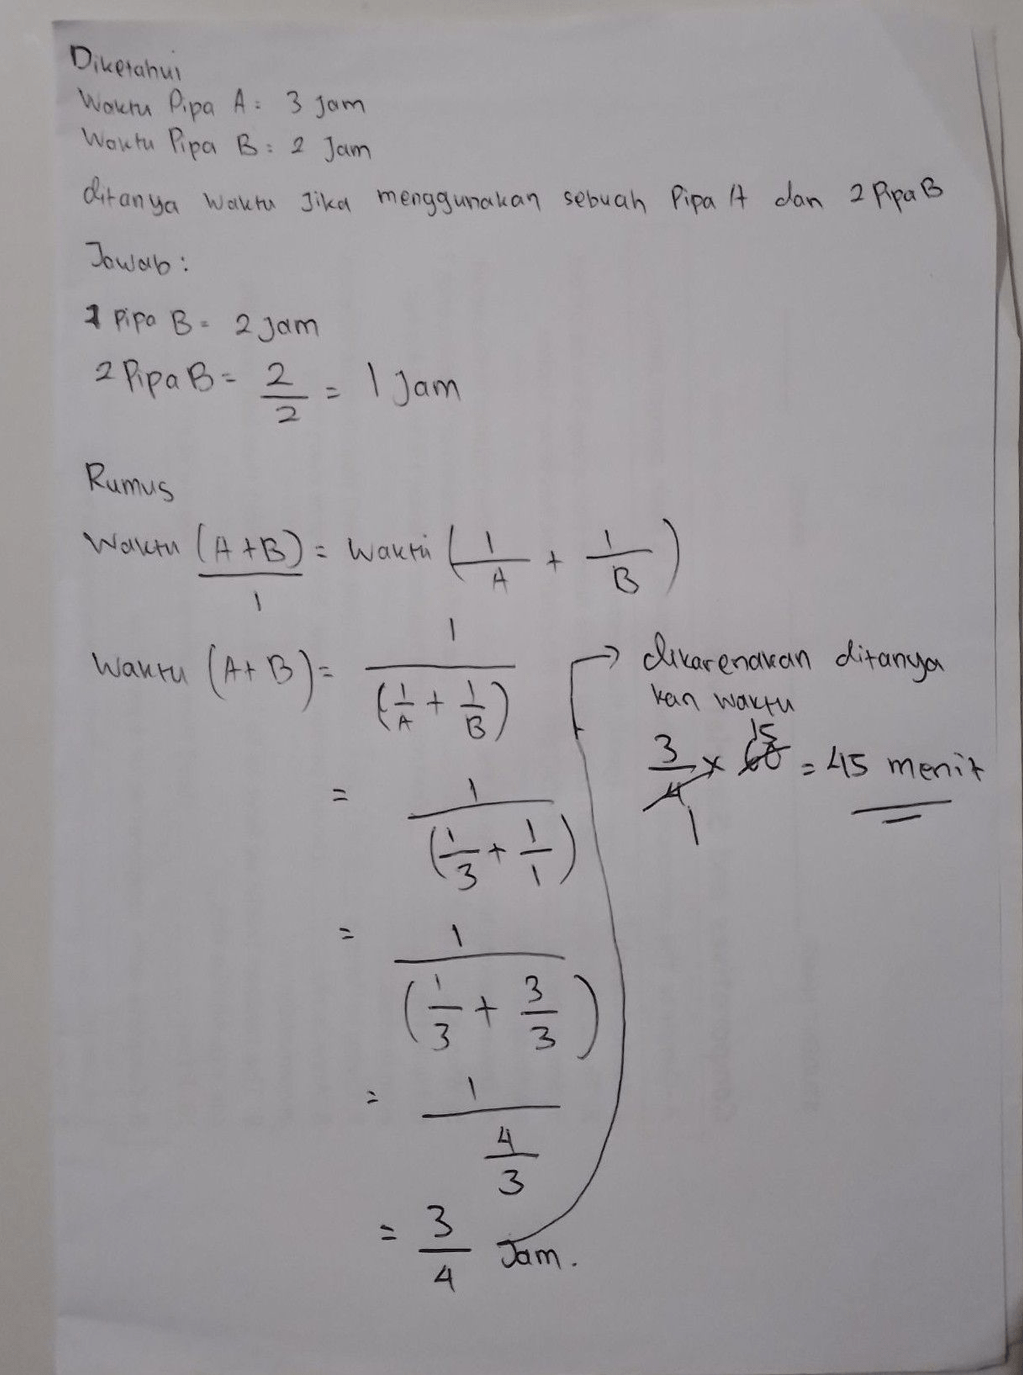 Diketahui
Waktu Pipa A = 3 jam
Waktu Pipa B = 2 Jam
ditanya waktu Jika menggunakan sebuah Pipa A dan 2 Pipa B
Jawab :
1 Pipa B = 2 jam
2 Pipa B = 2/2 = 1 Jam
Rumus
Waktu (A+B)/1 = Waktu (1/A + 1/B)
Waktu (A+B) = 1/(1/A + 1/B)
= 1/(1/3 + 1/1)
= 1/(1/3 + 3/3)
= 1/(4/3)
= 3/4 Jam.
→ dikarenakan ditanya
kan waktu
3/4 × 60 = 45 menit
15
1